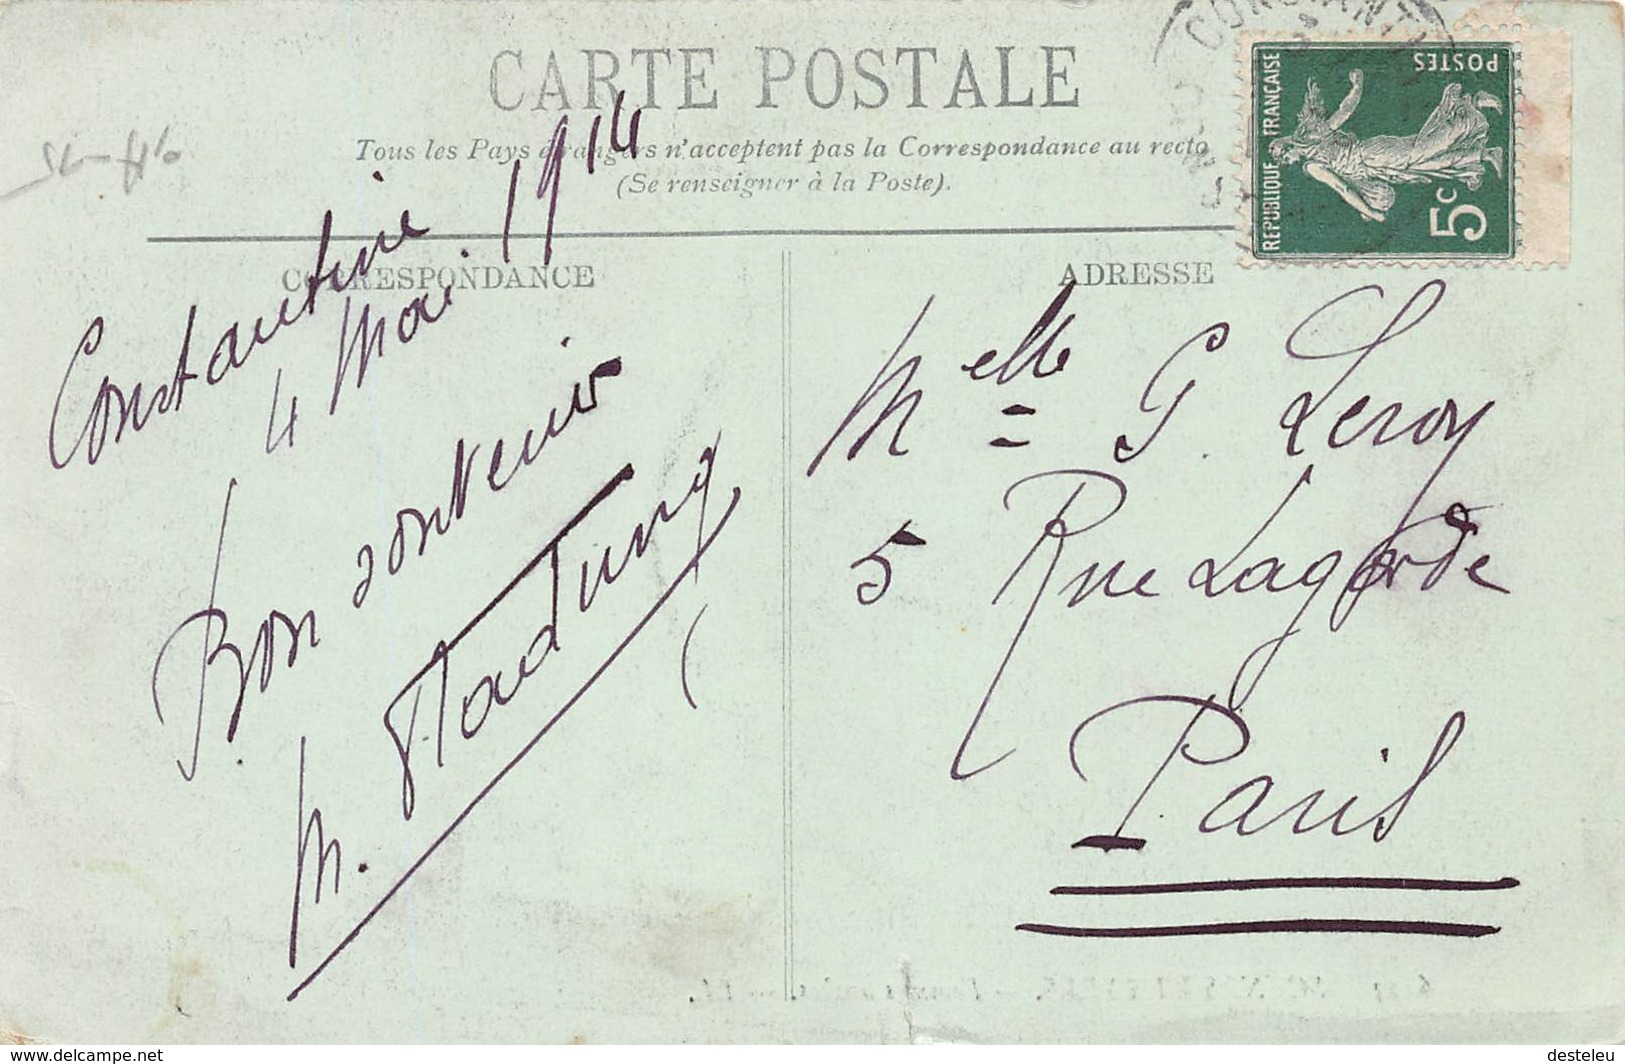 CARTE POSTALE
Tous les Pays étrangers n'acceptent pas la Correspondance au recto
(Se renseigner à la Poste).
CORRESPONDANCE
ADRESSE
REPUBLIQUE FRANÇAISE
POSTES
5c
Constantine
4 Mai 1914
Bon souvenir
M.
Melle G. Leroy
5 Rue Lagarde
Paris
www.delcampe.net
desteleu